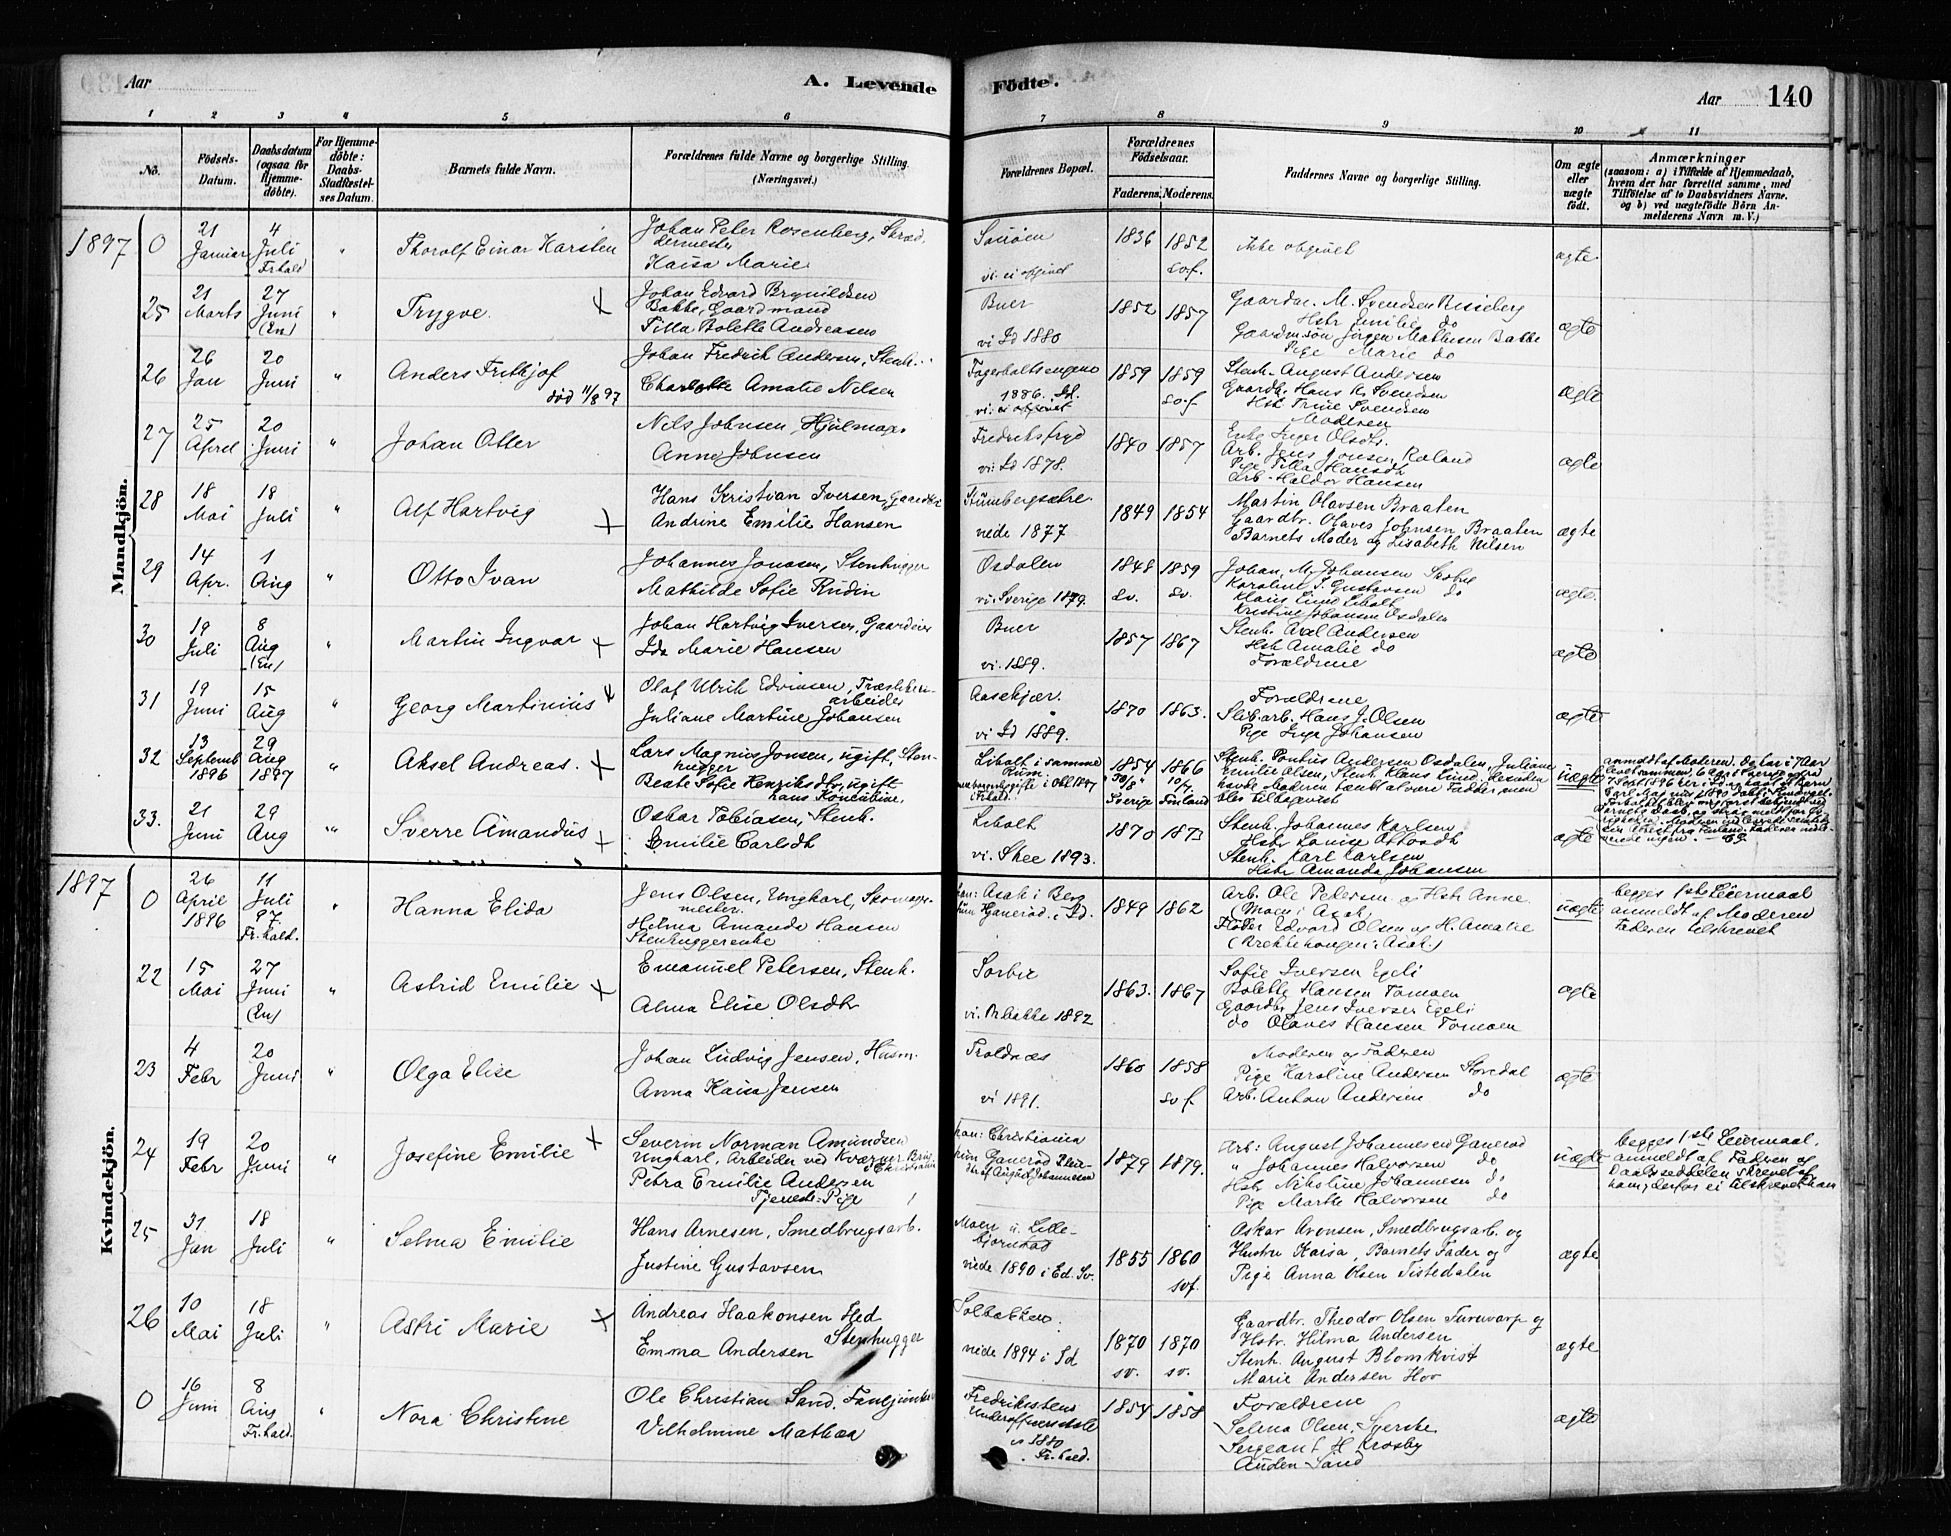 Aar
A. Levende
Födte.
Aar
140
1 2 3 4 5 6 7 8 9 10 11
No.
Födsels-
Datum.
Daabsdatum
(ogsaa for
Hjemme-
döbte).
For Hjemme-
döbte:
Daabs-
Stadfæstel-
ses Datum.
Barnets fulde Navn.
Forældrenes fulde Navne og borgerlige Stilling.
(Næringsvei.)
Forældrenes Bopæl.
Forældrenes
Födselsaar.
Faderens. Moderens.
Faddernes Navne og borgerlige Stilling.
Om ægte
eller
uægte
födt.
Anmærkninger
(saasom: a) i Tilfælde af Hjemmedaab,
hvem der har forrettet samme, med
Tilföielse af to Daabsvidners Navne,
og b) ved uægtefödte Börn An-
melderens Navn m. V.)
Mandkjön.
1897
0
21
Januar
4
Juli
Fr.hald
"
Thoralf Einar Karsten
Johan Peter Rosenberg, Skræd
dermester
Kaisa Marie
vi. ei opgivet
1836
1852
sv.f.
Ikke opgivet
ægte
25
21
Marts
27
Juni
(En)
"
Trygve
Johan Edvard Brynildsen
Bakke, Gaardmand
Tilla Bolette Andreasen
Buer
vi Id 1880
1852
1857
Gaardm. M. Svendsen Risseberg
Hstr Emilie do
Gaardmsön Jörgen Mathisen Bakke
Pige Marie do
ægte
26
26
Jan
20
Juni
"
Anders Frithjof
död 11/8 97
Johan Fredrik Andersen, Stenh.
Charlotte Amalie Nilsen
Fagerholtsengene
1886. Id.
vi: ei opgivet
1859
1859
sv.f.
Stenh. August Andersen
Gaardb. Hans K. Svendsen
Hst Trine Svendsen
Moderen
ægte
27
25
April
20
Juni
"
Johan Otter
Nils Johnsen, Hjulmager
Anne Johnsen
Fredriksfryd
vi: Id 1878.
1840
1857
Enke Inger Olsdtr.
Arb. Jens Jonsen Roland
Pige Tilla Hansdtr
Arb. Haldor Hansen
ægte
28
18
Mai
18
Juli
"
Alf Hartvig
Hans Kristian Iversen, Gaardbr
Andrine Emilie Hansen
viede 1877
1849
1854
Martin Olavsen Braaten
Gaardbr. Olaves Johnsen Braaten
Barnets Moder og Lisabeth Nilsen
ægte
29
14
Apr.
1
Aug
"
Otto Ivan
Johannes Jonasen, Stenhugger
Mathilde Sofie Rudin
Osdalen
vi. Sverige 1879.
1848
sv.
1859
sv.
Johan M. Johansen
Karoline J. Gustavsen do
Klaus Lund Liholt
Kristine Johansen Osdalen
ægte.
30
19
Juli
8
Aug
(En)
"
Martin Ingvar
Johan Hartvig Iversen, Gaardeier
Ida Marie Hansen
Buer
vi. 1889.
1857
1867
Stenh. Axel Andersen
Hst Amalie do
Forældrene
ægte
31
19
Juni
15
Aug
"
Georg Martinius
Olaf Ulrik Edvinsen, Træsliberi-
arbeider
Juliane Martine Johansen
Aasekjær.
vi Id 1889.
1870
1863.
Forældrene
Slib.arb. Hans J. Olsen
Pige Inga Johansen
ægte
32
13
Septemb
1896
29
Aug
1897
"
Aksel Andreas.
Lars Magnus Jonsen, ugift, Sten-
hugger
Beate Sofie Henriksdtr, ugift
hans Konkubine.
Liholt i samme
Rum
1854
30/8
Sverige
1866
Finland
Stenh. Pontus Andersen Osdalen, Juliane
Emilie Olsen, Stenh. Klaus Lund. Desuden
havde Moderen tænkt at være Fadder, men
blev tilbagevist
uægte
anmeldt af Moderen. De har i 7 Aar
levet sammen, 6 Aar i Sverige og fra
33.
21
Juni
29
Aug
"
Sverre Amandus
Oskar Tobiasen, Stenh.
Emilie Carlsdtr
Liholt
vi. Skee 1893.
1870
1873
Stenh. Johannes Karlsen
Hstr Lovise Ottosdtr
Stenh. Karl Karlsen
Hstr Amanda Johansen
ægte
Kvindekjön.
1897
0
26
April
1896
11
Juli
97
Fr.hald.
"
Hanna Elida
Jens Olsen, Ungkarl, Skomager-
mester.
Helma Amanda Hansen
Stenhuggerenke
han: Asak i Berg
hun Ganerød i Id.
1849
1862
Arb. Ole Petersen og Hstr Anne
(Moen i Asak)
Fløder Edvard Olsen og H. Amalie
(Brekkehougen i Asak.)
uægte
begges 1ste Leiermaal
anmeldt af Moderen
Faderen tilskrevet
22
15
Mai
27
Juni
(En)
"
Astrid Emilie
Emanuel Petersen, Stenh.
Alma Elise Olsdtr
Sorbir
vi. Rbakke 1892
1863.
1867
Sofie Iversen Egeli
Bolette Hansen Tomoen
Gaardbr Jens Iversen Egeli
do Olaves Hansen Tomoen
ægte
23
4
Febr
20
Juni
"
Olga Elise
Johan Ludvig Jensen, Husm.
Anna Kaisa Jensen
Troldnæs
vi 1891.
1860
1858
sv f.
Moderen og Faderen
Pige Karoline Andersen Storedal
Arb. Anton Andersen do
ægte
24
19
Febr
20
Juni
"
Josefine Emilie
Severin Norman Amundsen
Ungkarl, Arbeider ved Kværner Brug
i Christiania
Petra Emilie Andersen
Tjeneste-Pige
han: Christiania
hun Ganerød
1879
1879.
Arb: August Johannesen Ganerød
" Johannes Halvorsen do
Hstr Nikoline Johannesen do
Pige Marthe Halvorsen do
uægte
begges 1ste Leiermaal.
anmeldt af Faderen og
Daabsseddelen skrevet af
ham, derfor ei tilskrevet han
25
31
Jan
18
Juli
"
Selma Emilie
Hans Arnesen, Smedbrugsarb.
Justine Gustavsen
Moen u. Lille-
bjørnstad
viede 1890 i Ed. Sv.
1855
1860
svf.
Oskar Aronsen, Smedbrugsarb. og
Hustru Kaisa, Barnets Fader og
Pige Anna Olsen Tistedalen
ægte
26
10
Mai
18
Juli
"
Astri Marie
Andreas Haakonsen Hed
Stenhugger
Emma Andersen
Solbakken.
viede 1894 i Id
1870
sv.
1870
sv.
Gaardbr. Theodor Olsen Torvorp og
Hstr. Hilma Andersen
Stenh. August Blomkvist
Marie Andersen Hov
ægte
0
16
Juni
8
Aug
Fr.hald.
"
Nora Christine
Ole Christian Sand. Fanejunker
Vilhelmine Mathea
Fredrikstens
1880
Fr.hald.
1854
1858
Forældrene
Selma Olsen, Syerske
Sergeant H Krosby
Auden Sand
ægte